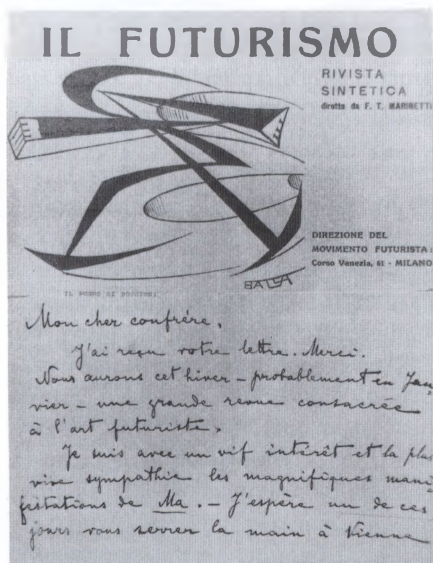 IL FUTURISMO
RIVISTA
SINTETICA
diretta da F. T. MARINETTI
DIREZIONE DEL
MOVIMENTO FUTURISTA:
Corso Venezia, 61 - MILANO
BALLA
IL PUGNO DI BOCCIONI
Mon cher confrére,
J'ai reçu votre lettre. Merci.
Nous aurons cet hiver - probablement en Jan
vier - une grande revue consacrée
à l'art futuriste.
Je suis avec un vif intérêt et la plus
vive sympathie les magnifiques mani
festations de Ma. - J'espère un de ces
jours vous serrer la main à Vienne